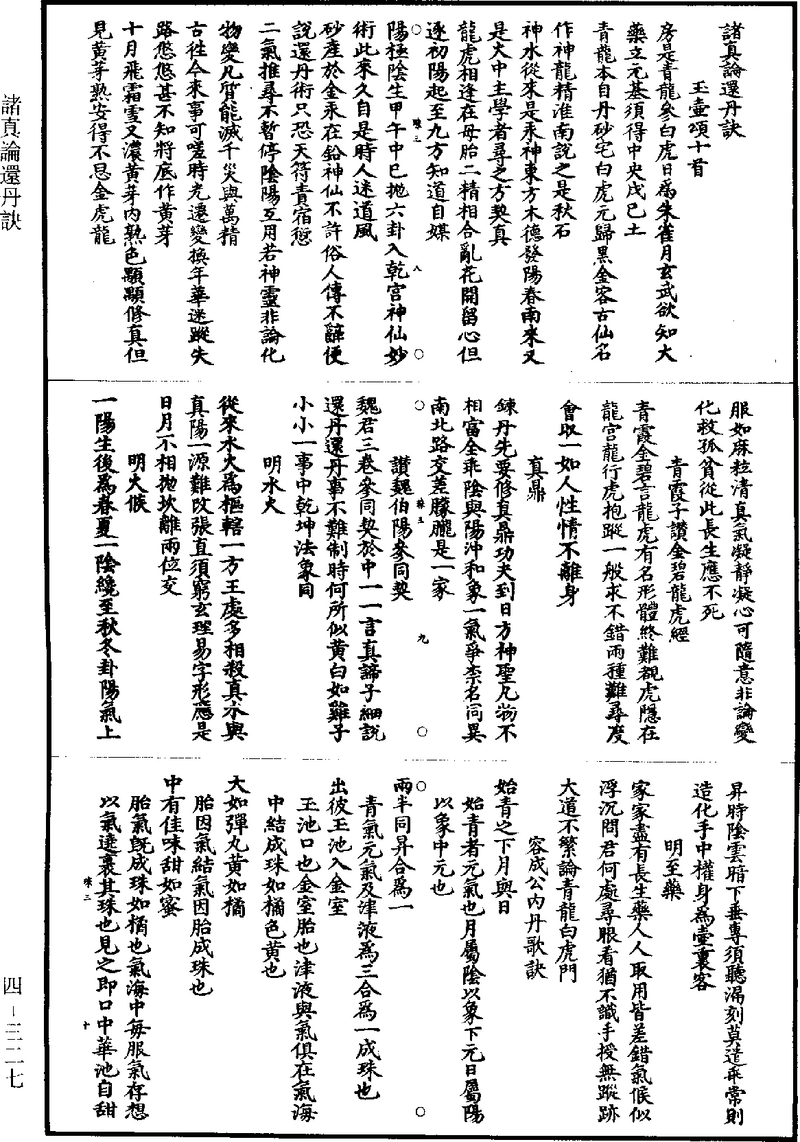 諸真論還丹訣
玉壺頌十首
房是青龍參白虎日為朱雀月玄武欲知大
藥立元基須得中央戊己土
青龍本自丹砂宅白虎元歸黑金客古仙名
作神龍精淮南說之是秋石
神水從來是汞神東方木德發陽春南來又
是火中主學者尋之方契真
龍虎相逢在母胎二精相合亂花開留心但
逐初陽起至九方知道自媒
陽極陰生甲午中巳拋六卦入乾宮神仙妙
術此來久自是時人迷道風
砂產於金汞在鉛神仙不許俗人傳不辭便
說還丹術只恐天符青宿愆
二氣推尋不暫停陰陽互用若神靈非論化
物變凡質能滅千災與萬精
古徃今來事可嗟時光還變換年華迷蹤失
路悠悠甚不知將底作黃芽
十月飛霜雪又濃黃芽內熟色顒顒修真但
見黃芽熟安得不恳金虎龍
服如麻粒清真氣凝靜凝心可隨意非論變
化救孤貧從此長生應不死
青霞子讚金碧龍虎經
青霞金碧言龍虎有名形體終難覩虎隱在
龍宮龍行虎抱蹤一般求不錯兩種難尋度
會取一如人性情不離身
真鼎
鍊丹先要修真鼎功夫到日方神聖凡物不
相富全乖陰與陽沖和象一氣爭柰名同異
南北路交差朦朧是一家
讚魏伯陽參同契
魏君三卷參同契於中一一言真諦子細說
還丹還丹事不難制時何所似黃白如雞子
小小一事中乾坤法象同
明水火
從來水火為樞轄一方王處多相殺真水與
真陽一源難改張直須窮玄理易字形應是
日月不相拋坎離兩位交
明火候
一陽生後為春夏一陰纔至秋冬卦陽氣上
昇時陰雲暗下垂專須聽漏刻莫遣乖常則
造化手中權身為壼裏客
明至藥
家家盡有長生藥人人取用皆差錯氣候似
浮沉問君何處尋眼看猶不識手授無蹤跡
大道不繁論青龍白虎門
容成公內丹歌訣
始青之下月與日
始青者元氣也月屬陰以象下元日屬陽
以象中元也
兩半同昇合為一
青氣元氣及津液為三合為一成珠也
出彼玉池入金室
玉池口也金室胎也津液與氣俱在氣海
中結成珠如橘色黃也
大如彈丸黃如橘
胎因氣結氣因胎成珠也
中有佳味甜如蜜
胎氣旣成珠如橘也氣海中每服氣存想
以氣遶裹其珠也見之即口中華池自甜
諸真論還丹訣
四－三二七